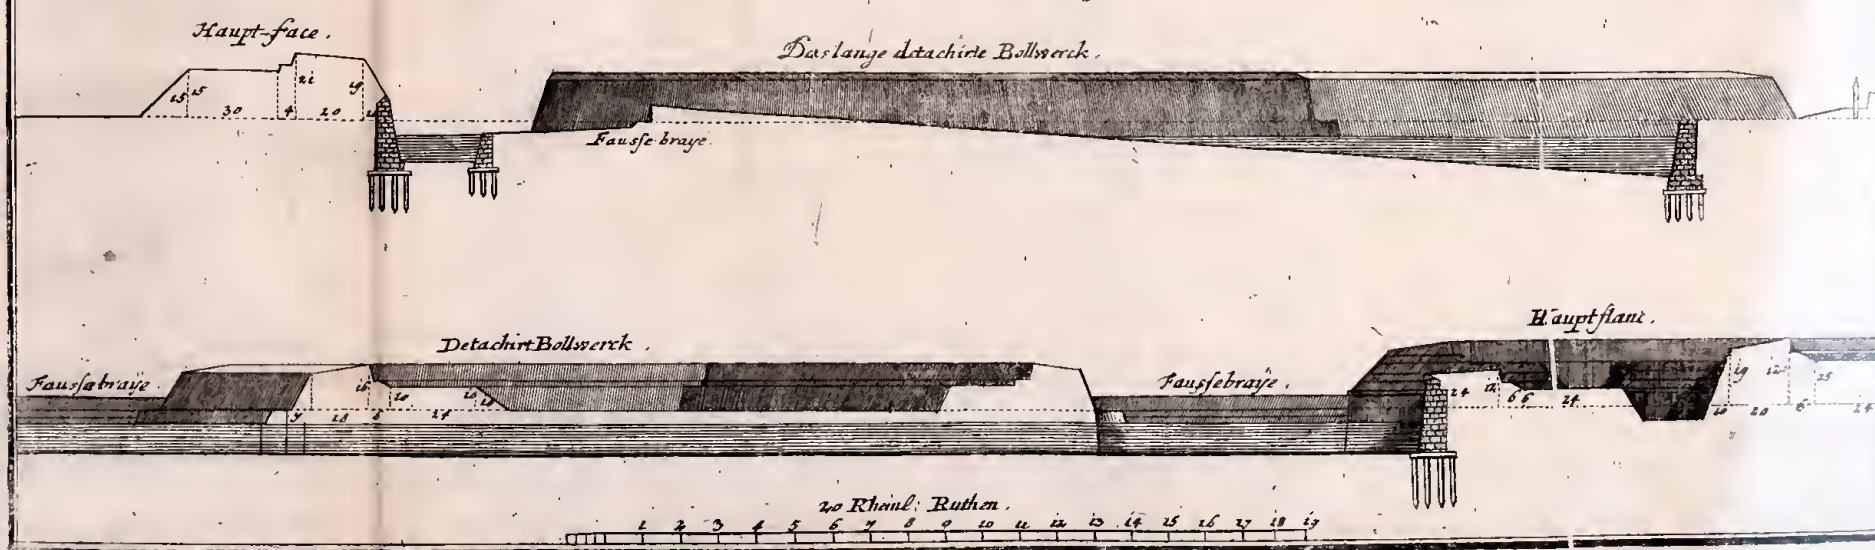 Haupt-face.
Das lange detachirte Bollwerck.
15 15 30 4 21 20 19
Fausse braye.
Detachirt Bollwerck.
Hauptflanc.
Faussebraye.
Faussebraye.
24 12 6 6 24 19 10 20 12 6 25 24
20 Rheinl: Ruthen.
1 2 3 4 5 6 7 8 9 10 11 12 13 14 15 16 17 18 19